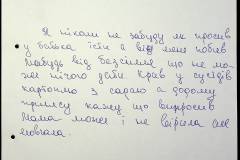 Я ніколи не забуду як просив
у батька їсти а він мене побив
Мабуть від безсилля що не мо-
же нічого дати. Крав у сусідів
картоплю з садка а додому
принесу кажу що випросив
Мама може і не вірила але
мовчала.